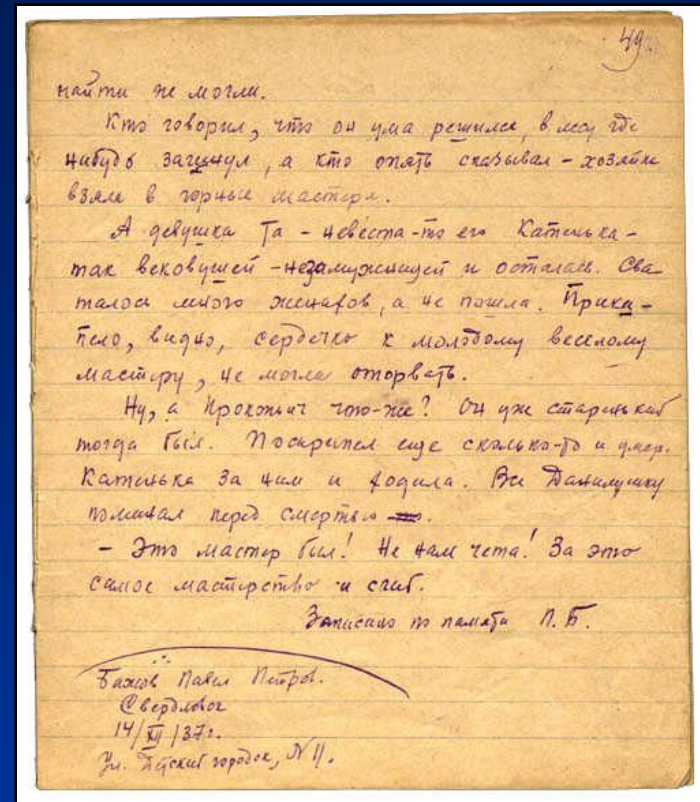 49
найти не могли.
Кто говорил, что он ума решился, в лесу где
нибудь загинул, а кто опять сказывал - хозяйка
взяла в горные мастера.
А девушка та - невеста-то его Катенька -
так вековушей - незамужницей и осталась. Сва-
талось много женихов, а не пошла. Прики-
пело, видно, сердечко к молодому веселому
мастеру, не могла оторвать.
Ну, а Прокопьич что-же? Он уже старенький
тогда был. Поскрипел еще сколько-то и умер.
Катенька за ним и ходила. Все Данилушку
поминал перед смертью.
- Это мастер был! Не нам чета! За это
самое мастерство и сгиб.
Записано по памяти П. Б.
Бажов Павел Петров.
Свердловск
14/XII/37г.
Ул. городок, N 11.